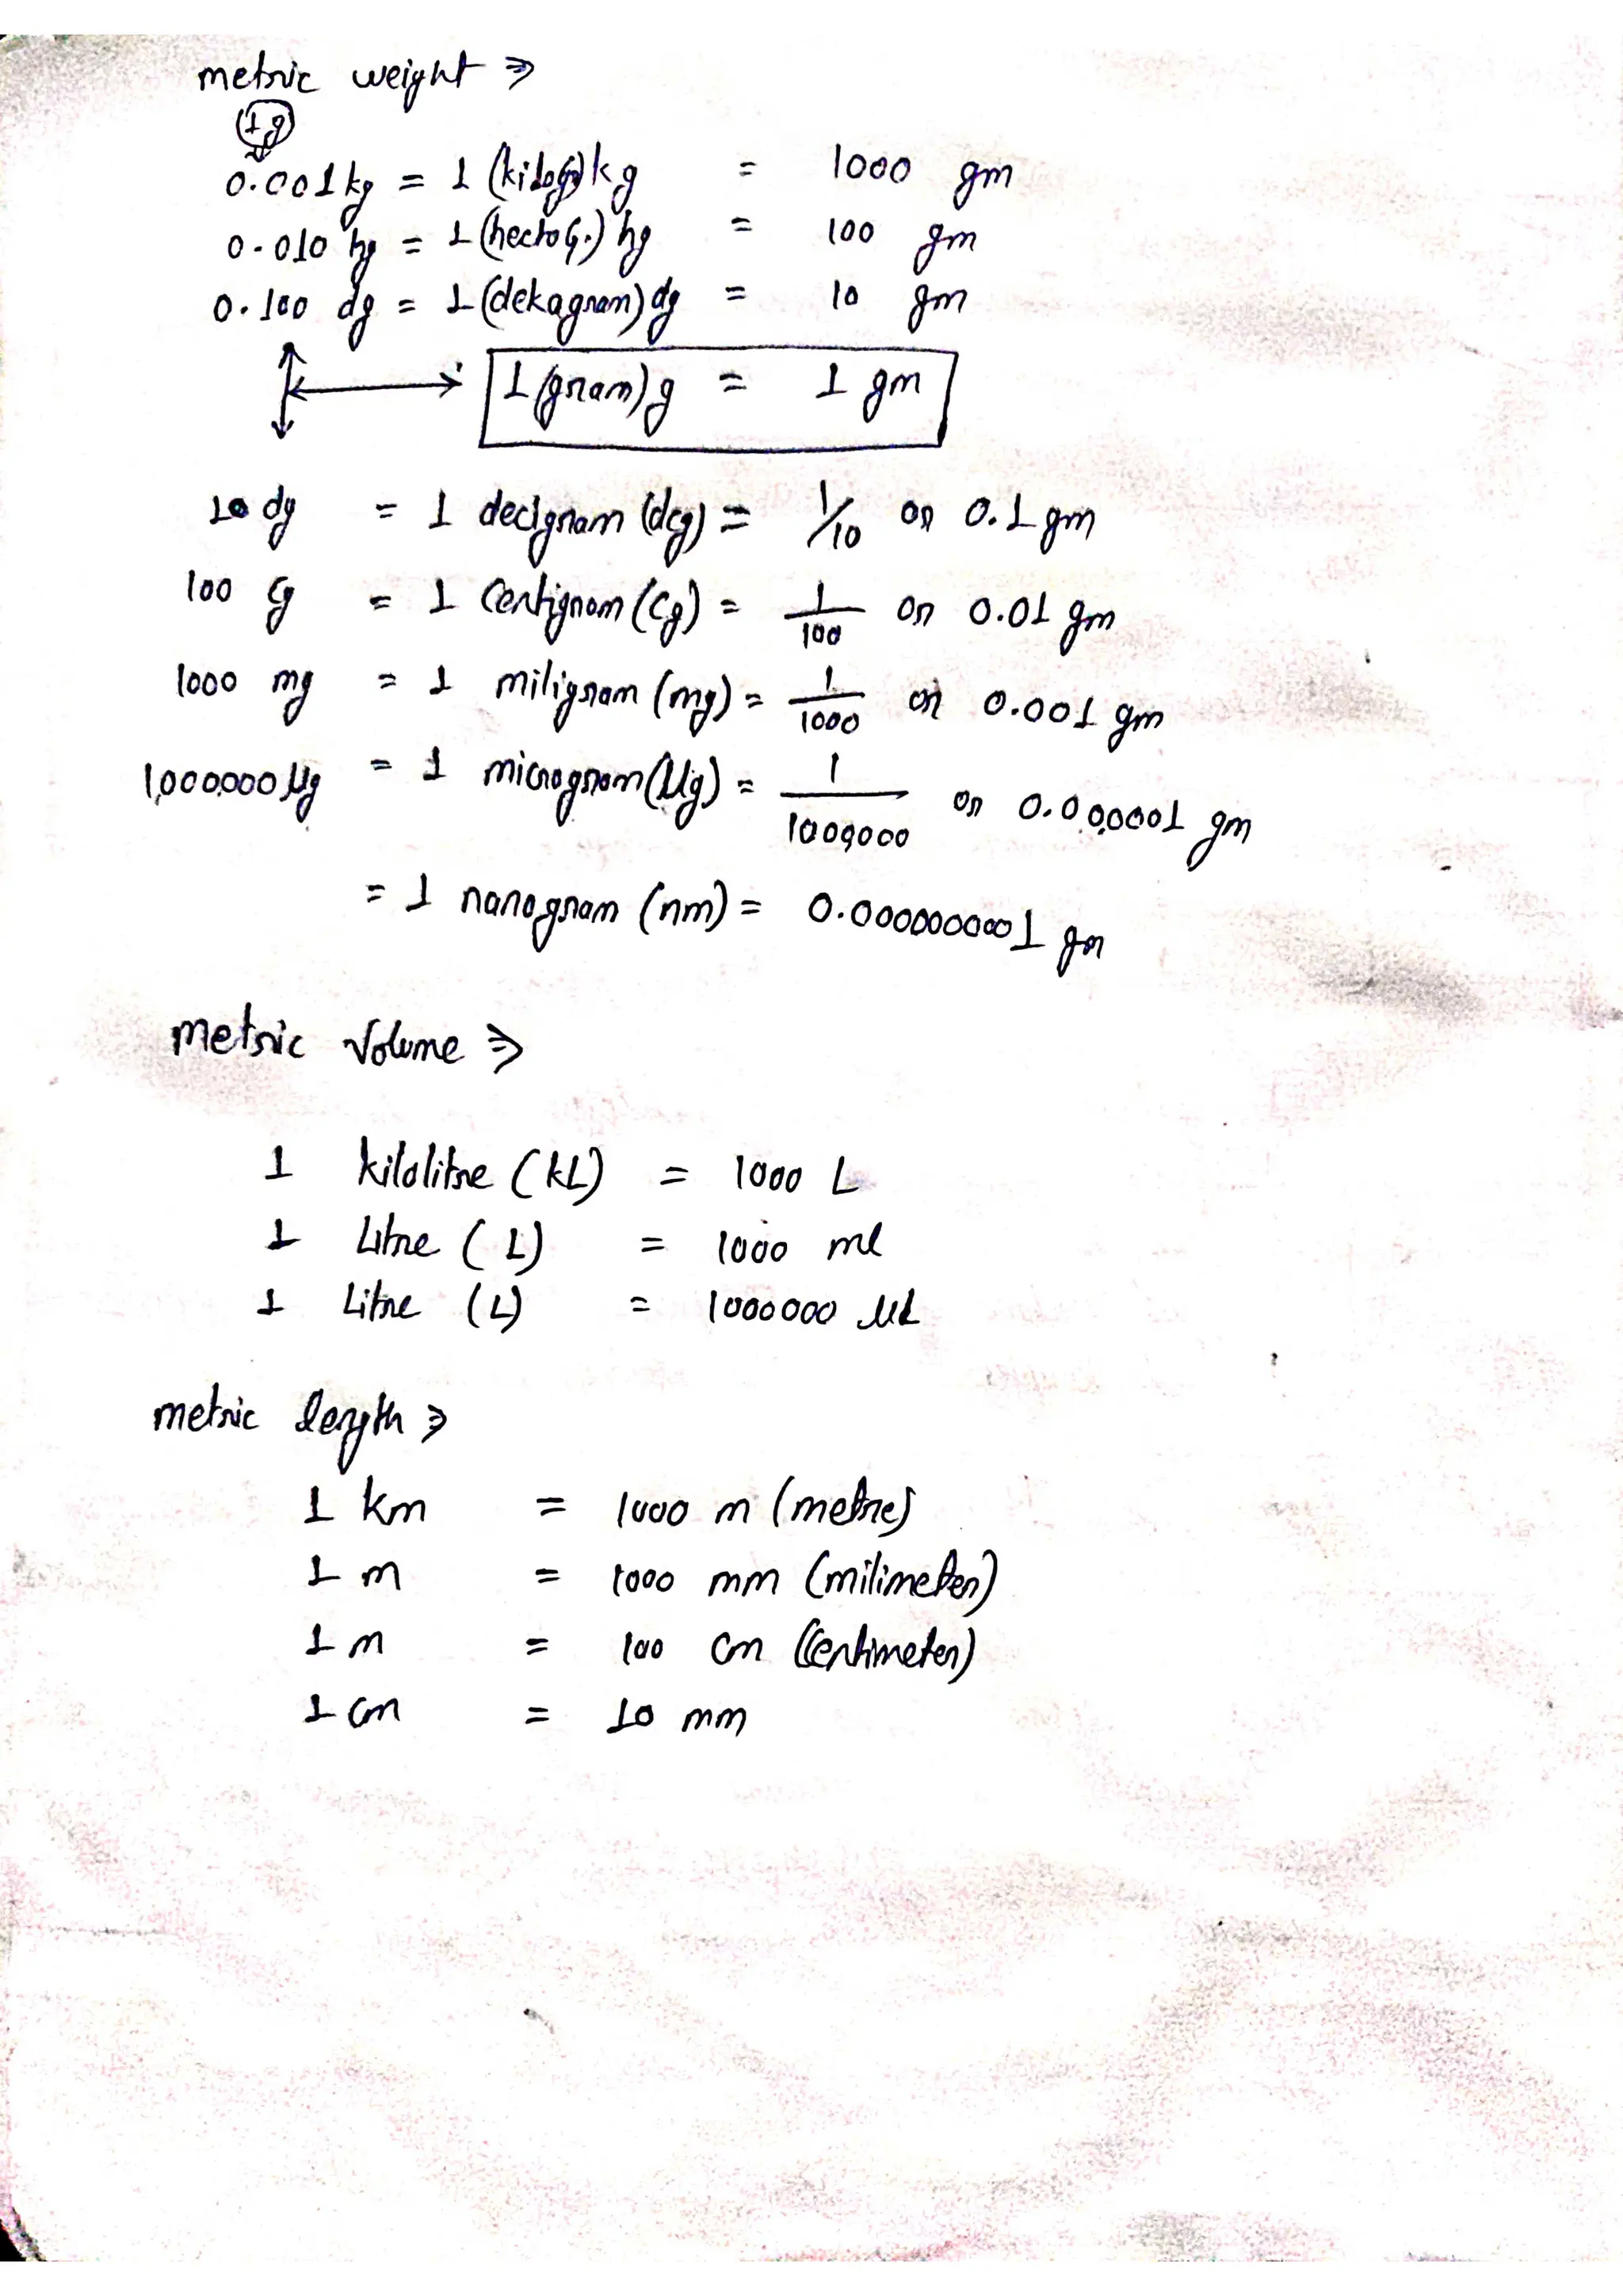 metric weight ⇒
(1g)
0.001 kg = 1 (kiloG) kg = 1000 gm
0.010 hg = 1 (hectoG.) hg = 100 gm
0.100 dg = 1 (dekagram) dg = 10 gm
1 (gram) g = 1 gm
10 dg = 1 decigram (dcg) = 1/10 or 0.1 gm
100 cg = 1 Centigram (Cg) = 1/100 or 0.01 gm
1000 mg = 1 miligram (mg) = 1/1000 or 0.001 gm
1,000,000 µg = 1 microgram (µg) = 1/1000,000 or 0.000,0001 gm
= 1 nanogram (nm) = 0.0000000001 gm
metric volume ⇒
1 kilolitre (kL) = 1000 L
1 Litre (L) = 1000 ml
1 Litre (L) = 1000000 µL
metric length ⇒
1 km = 1000 m (metre)
1 m = 1000 mm (milimeter)
1 m = 100 cm (Centimeter)
1 cm = 10 mm